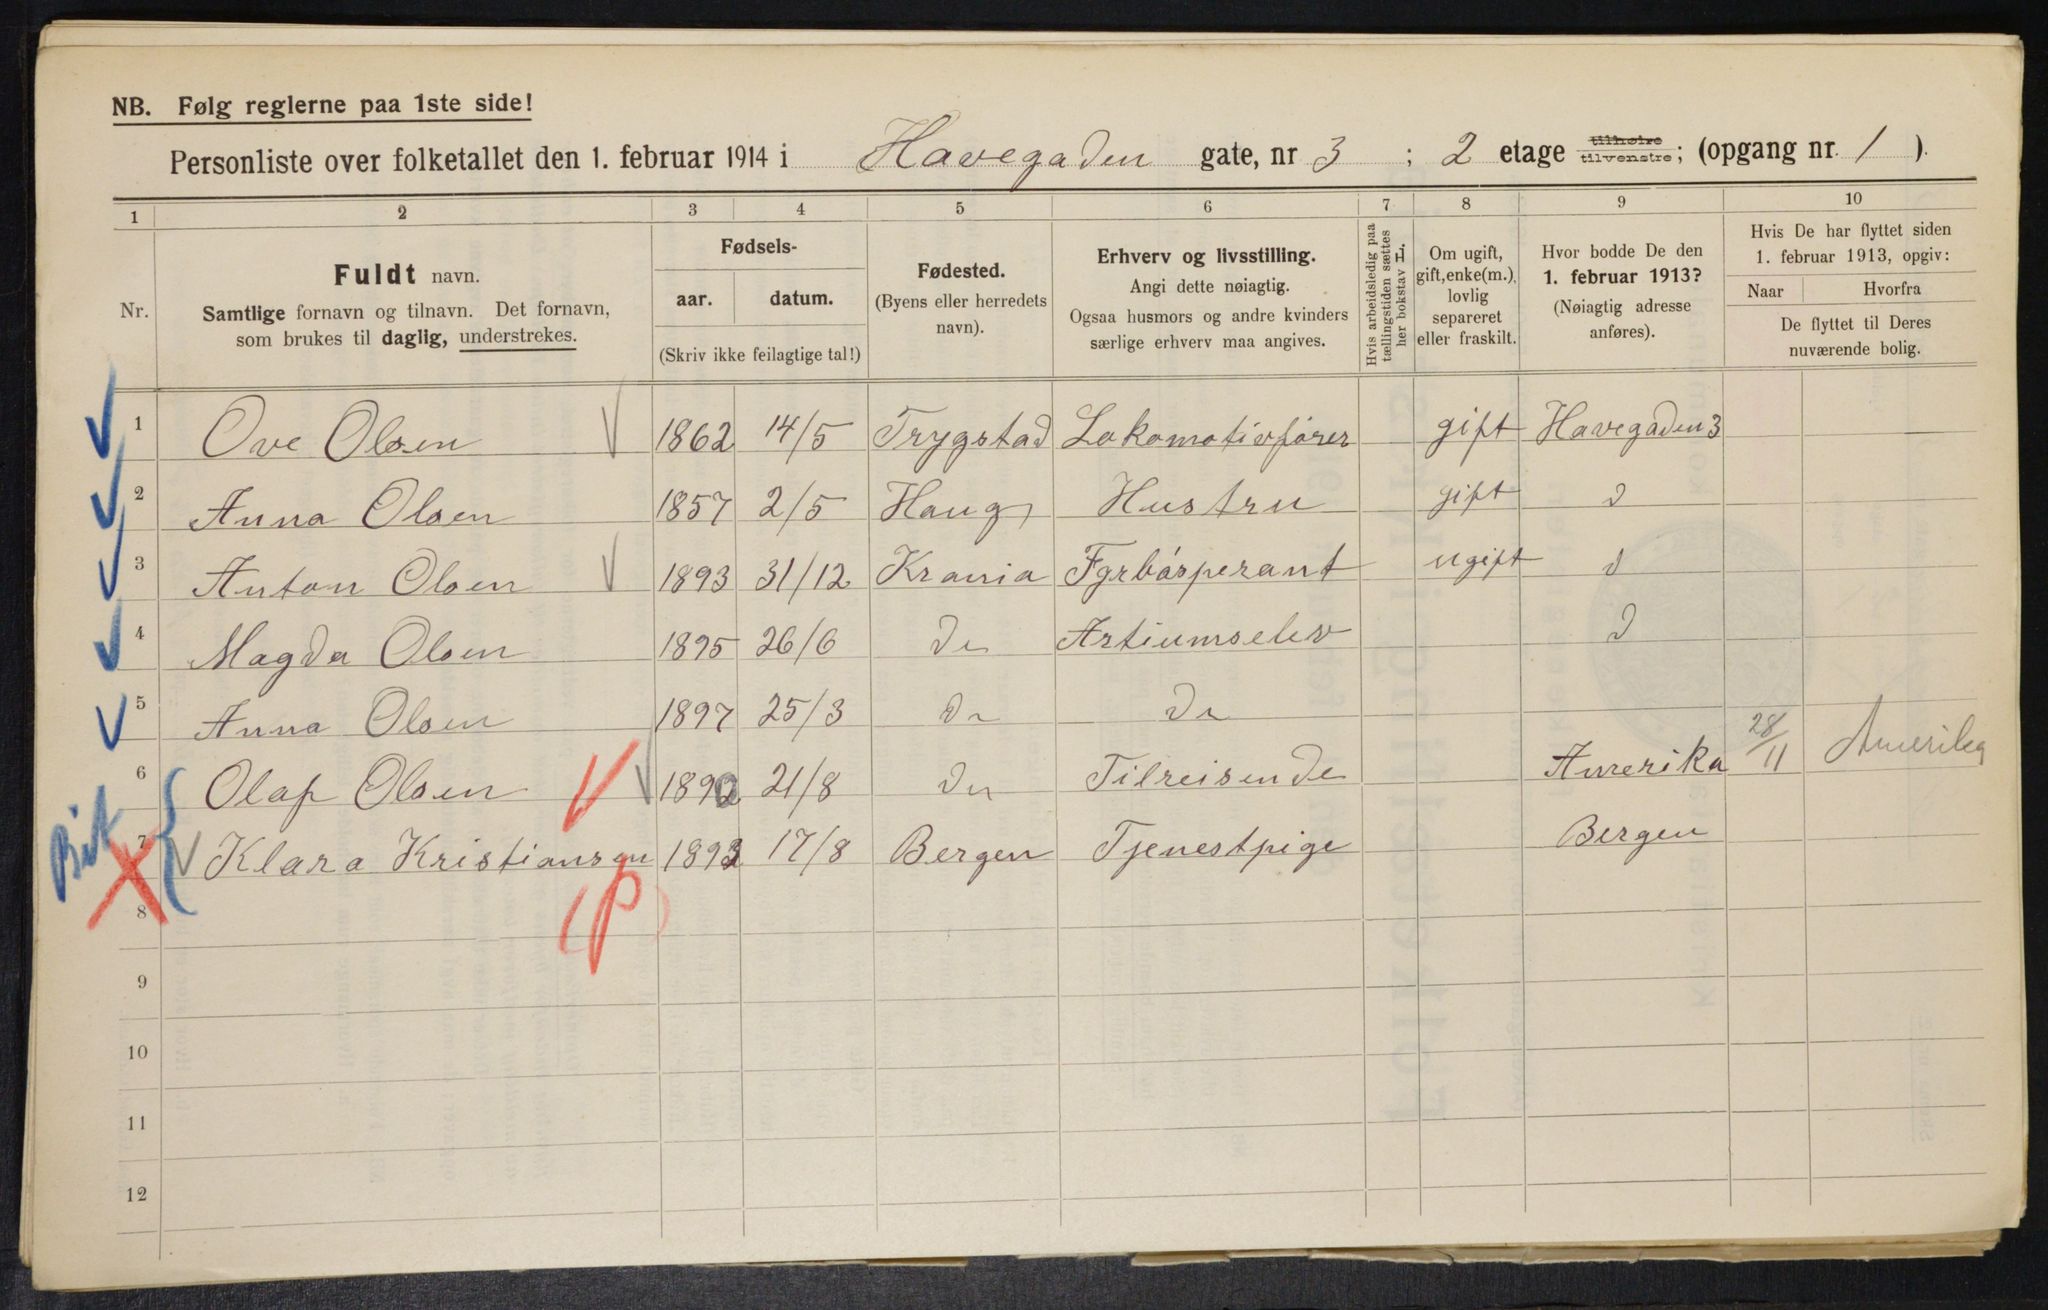 NB. Følg reglerne paa 1ste side!
Personliste over folketallet den 1. februar 1914 i Havegaden gate, nr 3 ; 2 etage tilhøire tilvenstre; (opgang nr. 1 ).
1 2 3 4 5 6 7 8 9 10
Nr.
Fuldt navn.
Samtlige fornavn og tilnavn. Det fornavn,
som brukes til daglig, understrekes.
Fødsels-
aar. datum.
(Skriv ikke feilagtige tal!)
Fødested.
(Byens eller herredets
navn).
Erhverv og livsstilling.
Angi dette nøiagtig.
Ogsaa husmors og andre kvinders
særlige erhverv maa angives.
Hvis arbeidsledig paa
tællingstiden sættes
her bokstav L.
Om ugift,
gift, enke(m.),
lovlig
separeret
eller fraskilt.
Hvor bodde De den
1. februar 1913?
(Nøiagtig adresse
anføres).
Hvis De har flyttet siden
1. februar 1913, opgiv:
Naar Hvorfra
De flyttet til Deres
nuværende bolig.
1 Ove Olsen 1862 14/5 Trygstad Lokomotivfører gift Havegaden 3
2 Anna Olsen 1857 2/5 Haug Hustru gift d
3 Anton Olsen 1893 31/12 Krania Fyrbásperant ugift d
4 Magda Olsen 1895 26/6 do Artiumselev d
5 Anna Olsen 1897 25/3 do do
6 Olaf Olsen 1890 21/8 do Tilreisende Amerika 28/11 Amerika
7 Klara Kristiansen 1893 17/8 Bergen Tjenestpige Bergen
8
9
10
11
12